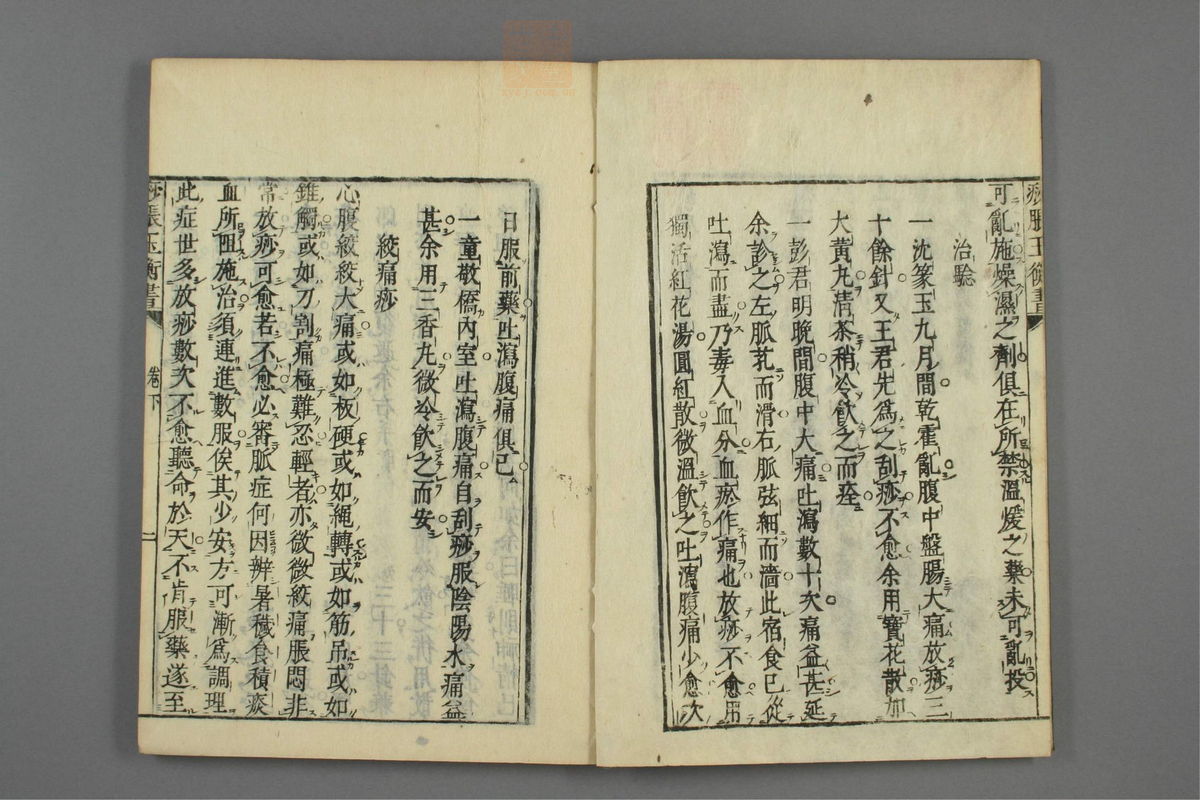 痧脹玉衡書
可亂施燥濕之劑俱在所禁溫煖之藥未可亂投
治驗
一沈篆玉九月間乾霍亂腹中盤腸大痛放痧三
十餘針又王君先爲之刮痧不愈余用寶花散加
大黃丸清茶稍冷飲之而痊
一彭君明晚間腹中大痛吐瀉數十次痛益甚延
余診之左脈芤而滑右脈弦細而濇此宿食已從
吐瀉而盡乃毒入血分血瘀作痛也放痧不愈用
獨活紅花湯圓紅散微溫飲之吐瀉腹痛少愈次
日服前藥吐瀉腹痛俱已
一童敬僑內室吐瀉腹痛自刮痧服陰陽水痛益
甚余用三香丸微冷飲之而安
絞痛痧
心腹絞絞大痛或如板硬或如繩轉或如筋吊或如
錐觸或如刀割痛極難忍輕者亦微微絞痛脹悶非
常放痧可愈若不愈必審脈症何因辨暑穢食積痰
血所阻施治須連進數服俟其少安方可漸爲調理
此症世多放痧數次不愈聽命於天不肯服藥遂至
痧脹玉衡書 卷下 二